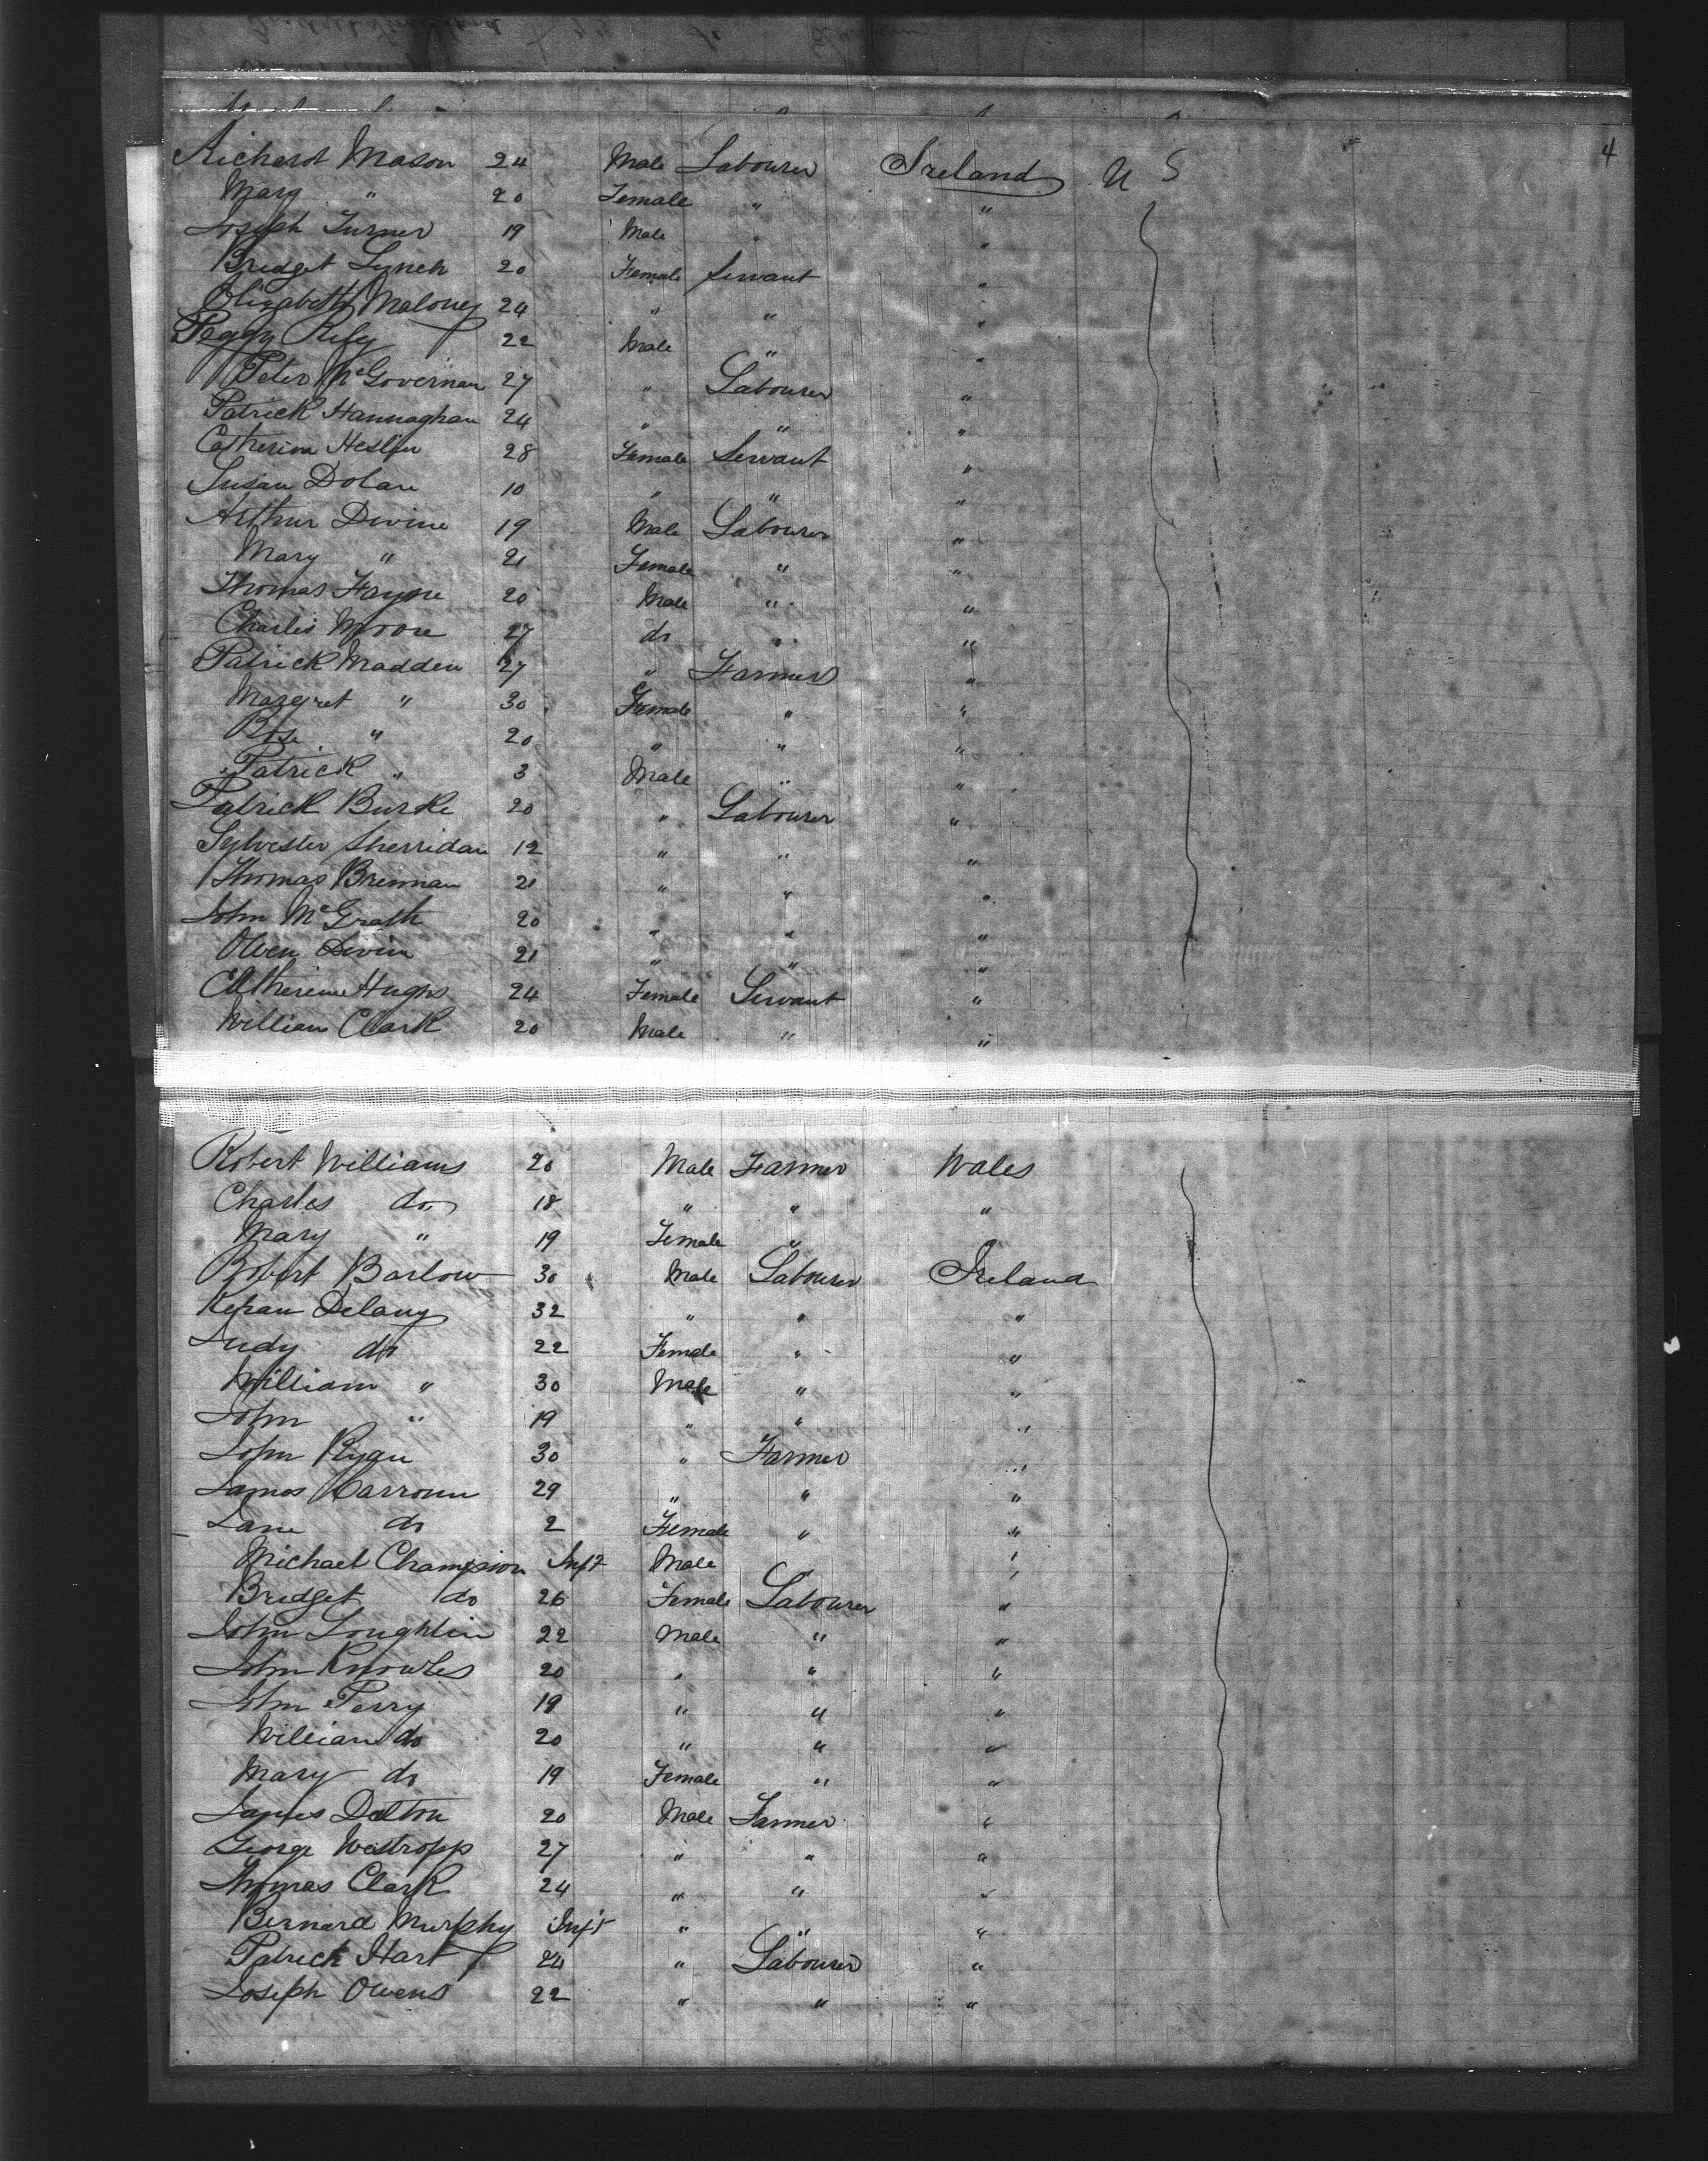 4
Richard Mason 24 Male Labourer Ireland U S
Mary " 20 Female " "
Joseph Turner 19 Male " "
Bridget Lynch 20 Female Servant "
Elizabeth Maloney 24 " " "
Peggy Rily 22 Male " "
Peter McGovernan 27 " Labourer "
Patrick Hannaghan 24 " " "
Catherine Heslin 28 Female Servant "
Susan Dolan 10 " " "
Arthur Devine 19 Male Labourer "
Mary " 21 Female " "
Thomas Fayne 20 Male " "
Charles Moore 27 do " "
Patrick Madden 27 " Farmer "
Margret " 30 Female " "
Rose " 20 " " "
Patrick " 3 Male " "
Patrick Burke 20 " Labourer "
Sylvester Sherridan 12 " " "
Thomas Brennan 21 " " "
John McGrath 20 " " "
Owen Devin 21 " " "
Catherine Hughs 24 Female Servant "
William Clark 20 Male " "
Robert Williams 20 Male Farmer Wales
Charles do 18 " " "
Mary " 19 Female "
Robert Barlow 30 Male Labourer Ireland
Keran Delany 32 " " "
Judy do 22 Female " "
William " 30 Male " "
John " 19 " " "
John Ryan 30 " Farmer "
James 29 " " "
Jane do 2 Female " "
Michael Champion Inft Male " "
Bridget do 26 Female Labourer "
John Loughlin 22 Male " "
John Knowles 20 " " "
John Perry 19 " " "
William do 20 " " "
Mary do 19 Female " "
James Dalton 20 Male Farmer "
George Westropp 27 " " "
Thomas Clark 24 " " "
Bernard Murphy Inft " " "
Patrick Hart 24 " Labourer "
Joseph Owens 22 " " "